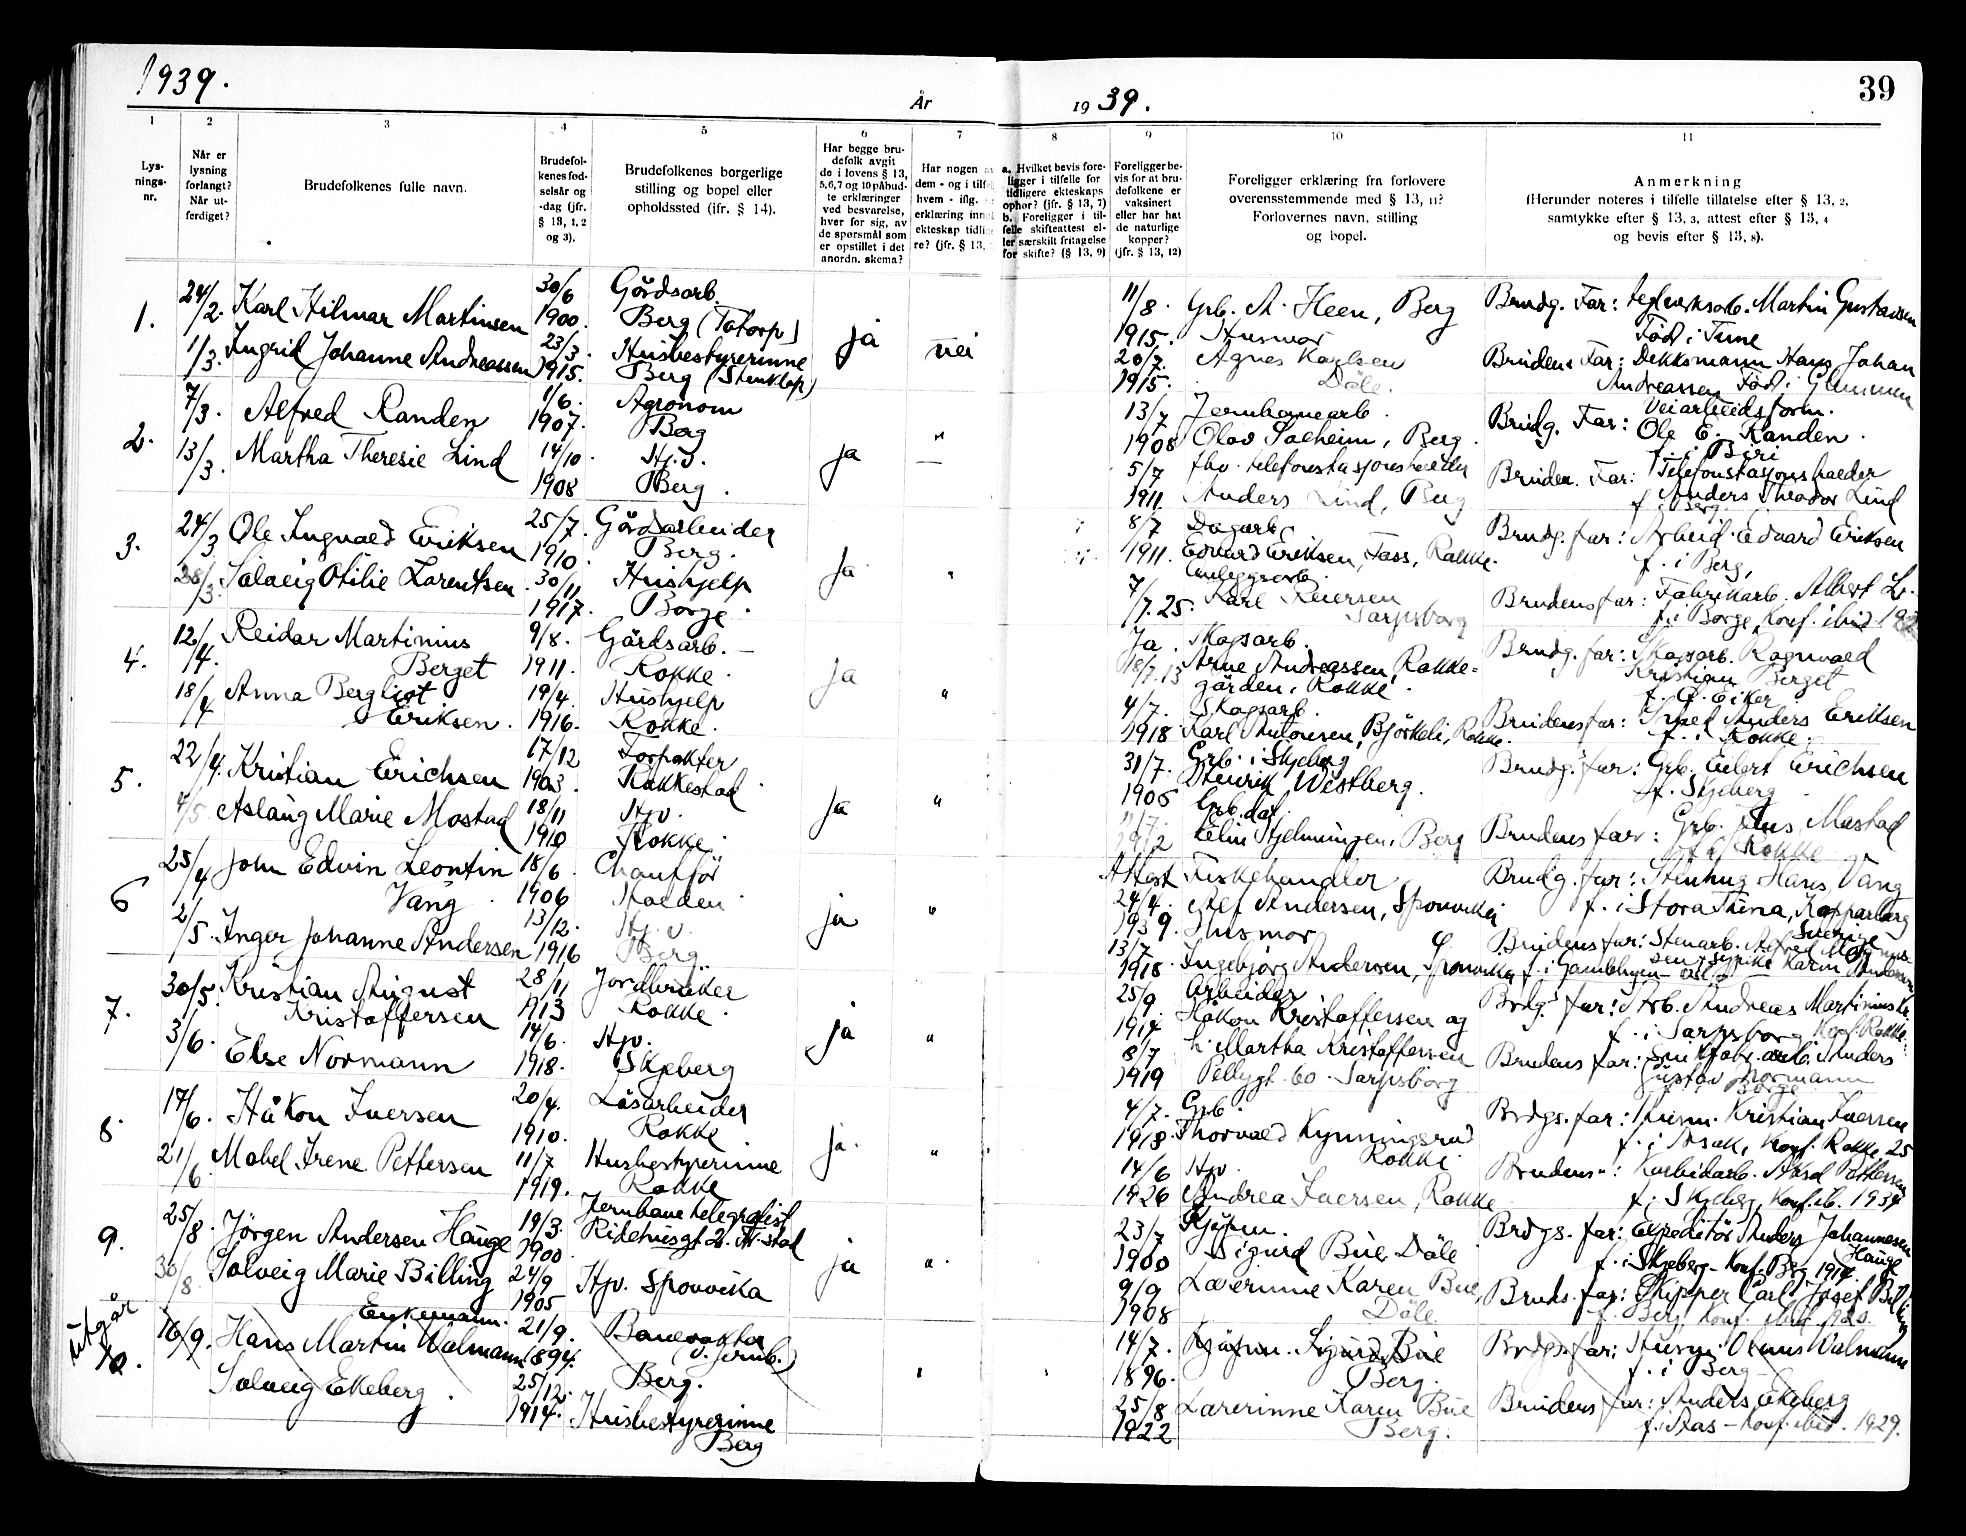 1939.
År
19 39.
39
1
2
3
4
5
6
7
8
9
10
11
Lys-
nings-
nr.
Når er
lysning
forlangt?
Når ut-
ferdiget?
Brudefolkenes fulle navn.
Brudefol-
kenes fød-
selsår og
-dag (jfr.
§ 13, 1, 2
og 3).
Brudefolkenes borgerlige
stilling og bopel eller
opholdssted (jfr. § 14).
Har begge bru-
defolk avgit
de i lovens § 13,
5,6,7 og 10 påbud-
te erklæringer
ved besvarelse,
hver for sig, av
de spørsmål som
er opstillet i det
anordn. skema?
Har nogen
dem - og i tilf
hvem - iflg.
erklæring inn
ekteskap tidli
re? (jfr. § 13,
a. Hvilket bevis fore-
ligger i tilfelle for
tidligere ekteskaps
ophør? (jfr. § 13, 7)
b. Foreligger i til-
felle skifteattest el-
ler særskilt fritagelse
for skifte? (§ 13, 9)
Foreligger be-
vis for at bru-
defolkene er
vaksinert
eller har hat
de naturlige
kopper?
(jfr. § 13, 12)
Foreligger erklæring fra forlovere
overensstemmende med § 13, 11?
Forlovernes navn, stilling
og bopel.
Anmerkning
(Herunder noteres i tilfelle tillatelse efter § 13, 2,
samtykke efter § 13, 3, attest efter § 13, 4
og bevis efter § 13, 8).
1.
24/2.
Karl Hilmar Martinsen
30/6
1900.
Gårdsarb.
Berg (Tatorp)
ja
nei
11/8.
1915.
Grb. A. Heen, Berg
Brudg. Far: teglverksarb. Martin Gustavsen
Född i Tune
1/3.
Ingrid Johanne Andreassen
23/3.
1915.
Husbestyrerinne
Berg (Stenklep)
20/7.
1915.
Husmor
Agnes Karlsen
Däle.
Brudens Far: Dekksmann Hans Johan
Andreassen Född i
2.
7/3.
Alfred Randen
1/6.
1907.
Agronom
Berg
ja
"
13/7
1908
Jernbanearb.
Olav Solheim, Berg.
Brudg. Far: Veiarbeidsform.
Ole E. Randen.
f. i Biri
13/3.
Martha Theresie Lind
14/10.
1908
Hj.v.
Berg.
5/7
1911.
fhv. telefonstasjonsholder
Anders Lind, Berg
Bruden. Far: Telefonstasjonsholder
Anders Theodor Lind
f. Berg.
3.
24/3
Ole Ingvald Eriksen
25/7.
1910.
Gårdsarbeider
Berg.
Ja
"
8/7
1911.
Dagarb.
Edvard Eriksen, Foss, Rokke.
Brudg. far: Arbeid. Edvard Eriksen
f. i Berg,
28/3.
Solveig Otilie Larentsen.
30/11
1917.
Hushjelp
Borge.
7/7.25.
Anleggsarb.
Karl Reiersen
Sarpsborg
Brudens far: Fabrikarb. Albert L.
f. i Borge, Konf. ibid.
4.
12/4.
Reidar Martinius
Berget
9/8.
1911.
Gårdsarb.
Rokke.
Ja
"
Ja.
18/7.13
Skogsarb.
Arne Andreassen, Rokke-
gården, Rokke.
Brudg. far: Skogsarb. Ragnvald
Kristian Berget
f. Ø. Eiker
18/4
Anna Bergliot
Eriksen.
19/4.
1916.
Hushjelp
Rokke.
4/7.
1918
Skogsarb.
Karl Antonsen, Björkeli, Rokke.
Brudens far: Smed Anders Eriksen
f. i Rokke.
5.
22/4.
Kristian Erichsen
17/12
1903.
Forpakter
Rakkestad
Ja
"
31/7.
1906
Grb. i Skjeberg
Henrik Westberg.
Brudg. far: Grb. Eilert Erichsen
f. Skjeberg
4/5
Aslaug Marie Mostad
18/11
1910
Hjv.
Rokke.
Grb. dat.
Elin Hjelmungen, Berg
Brudens far: Grb. Jens Mostad
f. i Rokke
6
25/4
John Edvin Leontin
Vang.
18/6.
1906
Chaufför
Halden
ja
"
Attest
24/4.
1939.
Fiskehandler
Alf Andersen, Sponvika
Brudg. far: Stenhug. Hans Vang
f. i Stora Tuna, Kopparberg
Sverige
2/5.
Inger Johanne Andersen
13/12.
1916
Hj.v.
Berg
13/7
1918.
Husmor
Ingebjörg Andersen, Sponvika
Brudens far: Stenarb. Alfred Magnus-
7.
30/5.
Kristian August
Kristoffersen
28/11
1913
Jordbruker
Rokke.
ja
"
25/9.
1914
Arbeider
Håkon Kristoffersen og
Brdg. far: Arb. Andreas Martinius Kr.
f. i Sarpsborg Konf. Rokke.
3/6.
Else Normann
14/6.
1918.
Hjv.
Skjeberg
8/7
1919
h. Martha Kristoffersen
Pellygt. 60. Sarpsborg
Brudens far: Snikfabr. arb. Anders
Gustav Normann
f. i Borge
8.
17/6.
Håkon Iversen
20/4.
1910.
Läsarbeider
Rokke.
Ja.
"
4/7.
1918.
Grb.
Thorvald Kynningsrud
Rokke.
Brdgs. far: Husm. Kristian Iversen
f. i Asak, Konf. Rokke 25
21/6
Mabel Irene Pettersen
11/7
1919.
Husbestyrerinne
Rokke
14/6
1926
Hjv.
Andrea Iversen, Rokke
Brudens ": Karbidarb. Aksel Pettersen
f. i Skjeberg, Konf. ib. 1934
9.
25/8.
Jörgen Andersen Hauge
19/3.
1900.
Jernbanetelegrafist
Ridehusgt. 2. Fr.stad
ja
"
23/7
1900
Kjöpm.
Sigurd Bue Däle
Brdgs. far: Expeditör Anders Johannesen
Hauge
f. i Skjeberg - Konf. Berg 1914.
30/8
Solveig Marie Billing
24/9
1905
Hjv. Sponvika
9/9
1908
Lærerinne Karen Bue,
Däle
Bruds. far: Skipper Carl Josef Billing
f. Berg, Konf. ibid. 1920.
utgår
10.
16/9.
Enkemann.
Hans Martin Valmann
21/9.
1894.
Banevokter
(v. jernb.)
Berg.
"
"
14/7.
1896.
Kjöpm. Sigurd Bue
Berg.
Brdgs. far: Husm. Olaus Valmann
f. i Berg
Solveig Ekeberg.
25/12.
1914.
Husbestyrerinne
Berg
25/8
1922
Lærerinne Karen Bue
Berg.
Brudens far: Anders Ekeberg
f. i Aas - Konf. ibid. 1929.